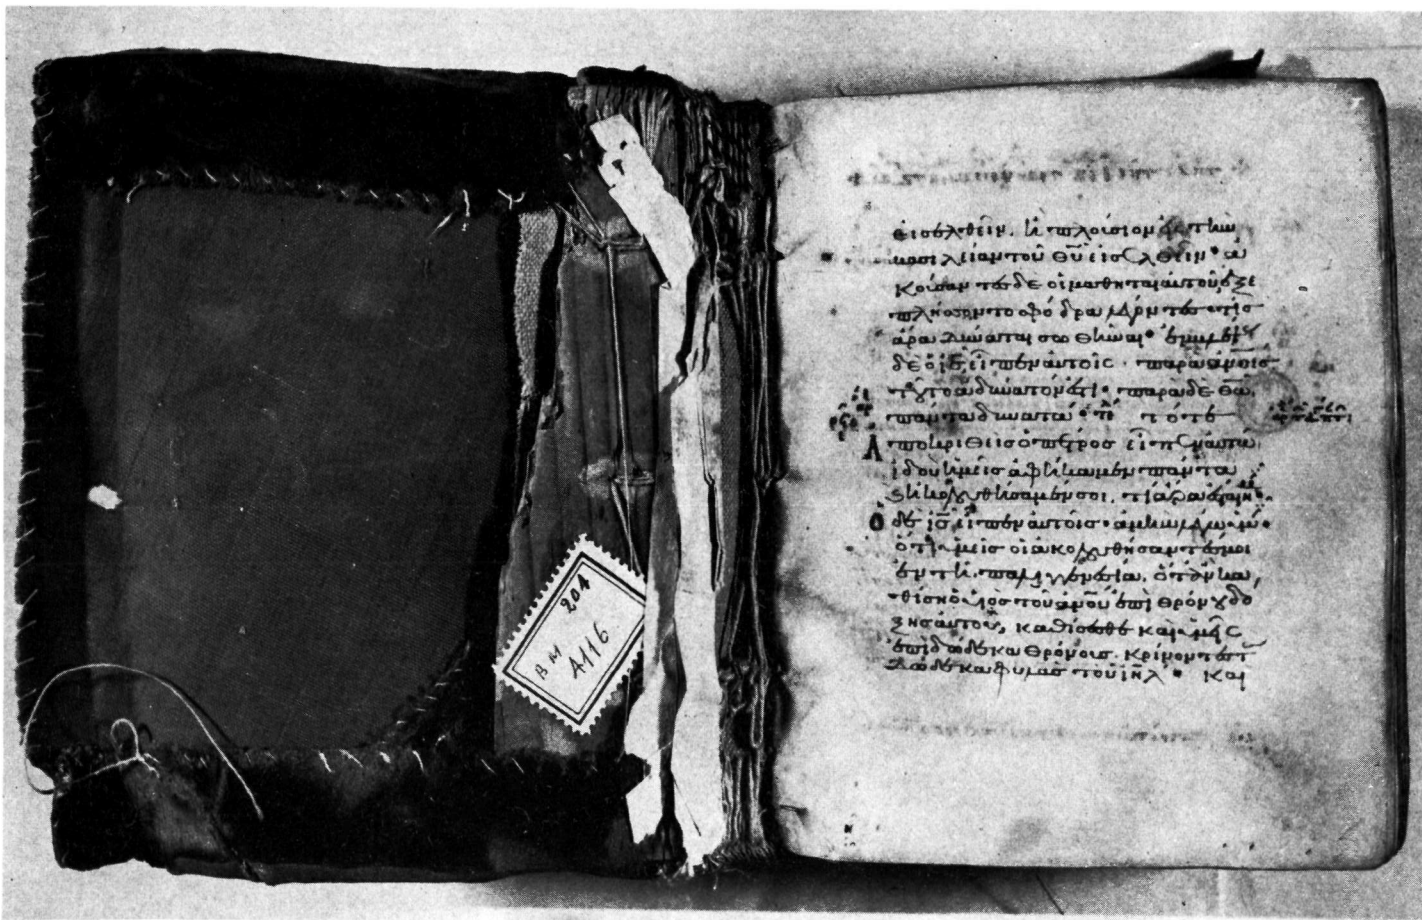 204
BM
A116.
εἰσελθεῖν. ἢ πλούσιον εἰς τὴν
βασιλείαν τοῦ θ̅υ̅ εἰσελθεῖν· ἀ
κούσαντες δὲ οἱ μαθηταὶ αὐτοῦ ἐξε
πλήσσοντο σφόδρα λέγοντες· τίς
ἄρα δύναται σωθῆναι· ἐμβλέψας
δὲ ὁ ι̅ς̅ εἶπεν αὐτοῖς· παρὰ ἀ̅ν̅οις
τοῦτο ἀδύνατόν ἐστι· παρὰ δὲ θ̅ω̅
πάντα δυνατά· τότε
Ἀποκριθεὶς ὁ πέτρος εἶπεν αὐτῷ
ἰδοὺ ἡμεῖς ἀφήκαμεν πάντα
ϗ ἠκολουθήσαμέν σοι. τί ἄρα ἔσται
Ὁ δὲ ι̅ς̅ εἶπεν αὐτοῖς· ἀμὴν λέγω ὑμῖν·
ὅτι ὑμεῖς οἱ ἀκολουθήσαντές μοι
ἐν τῇ παλιγγενεσίᾳ. ὅταν κα
θίσῃ ὁ υἱὸς τοῦ ἀ̅ν̅ου ἐπὶ θρόνου δό
ξης αὐτοῦ, καθίσεσθε καὶ ὑμεῖς
ἐπὶ δώδεκα θρόνους. κρίνοντες τ
δώδεκα φυλὰς τοῦ ι̅η̅λ̅· Καὶ